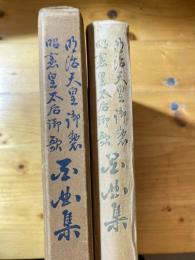 明治天皇御製
昭憲皇太后御歌
名曲集
明治天皇御製
昭憲皇太后御歌
名曲集